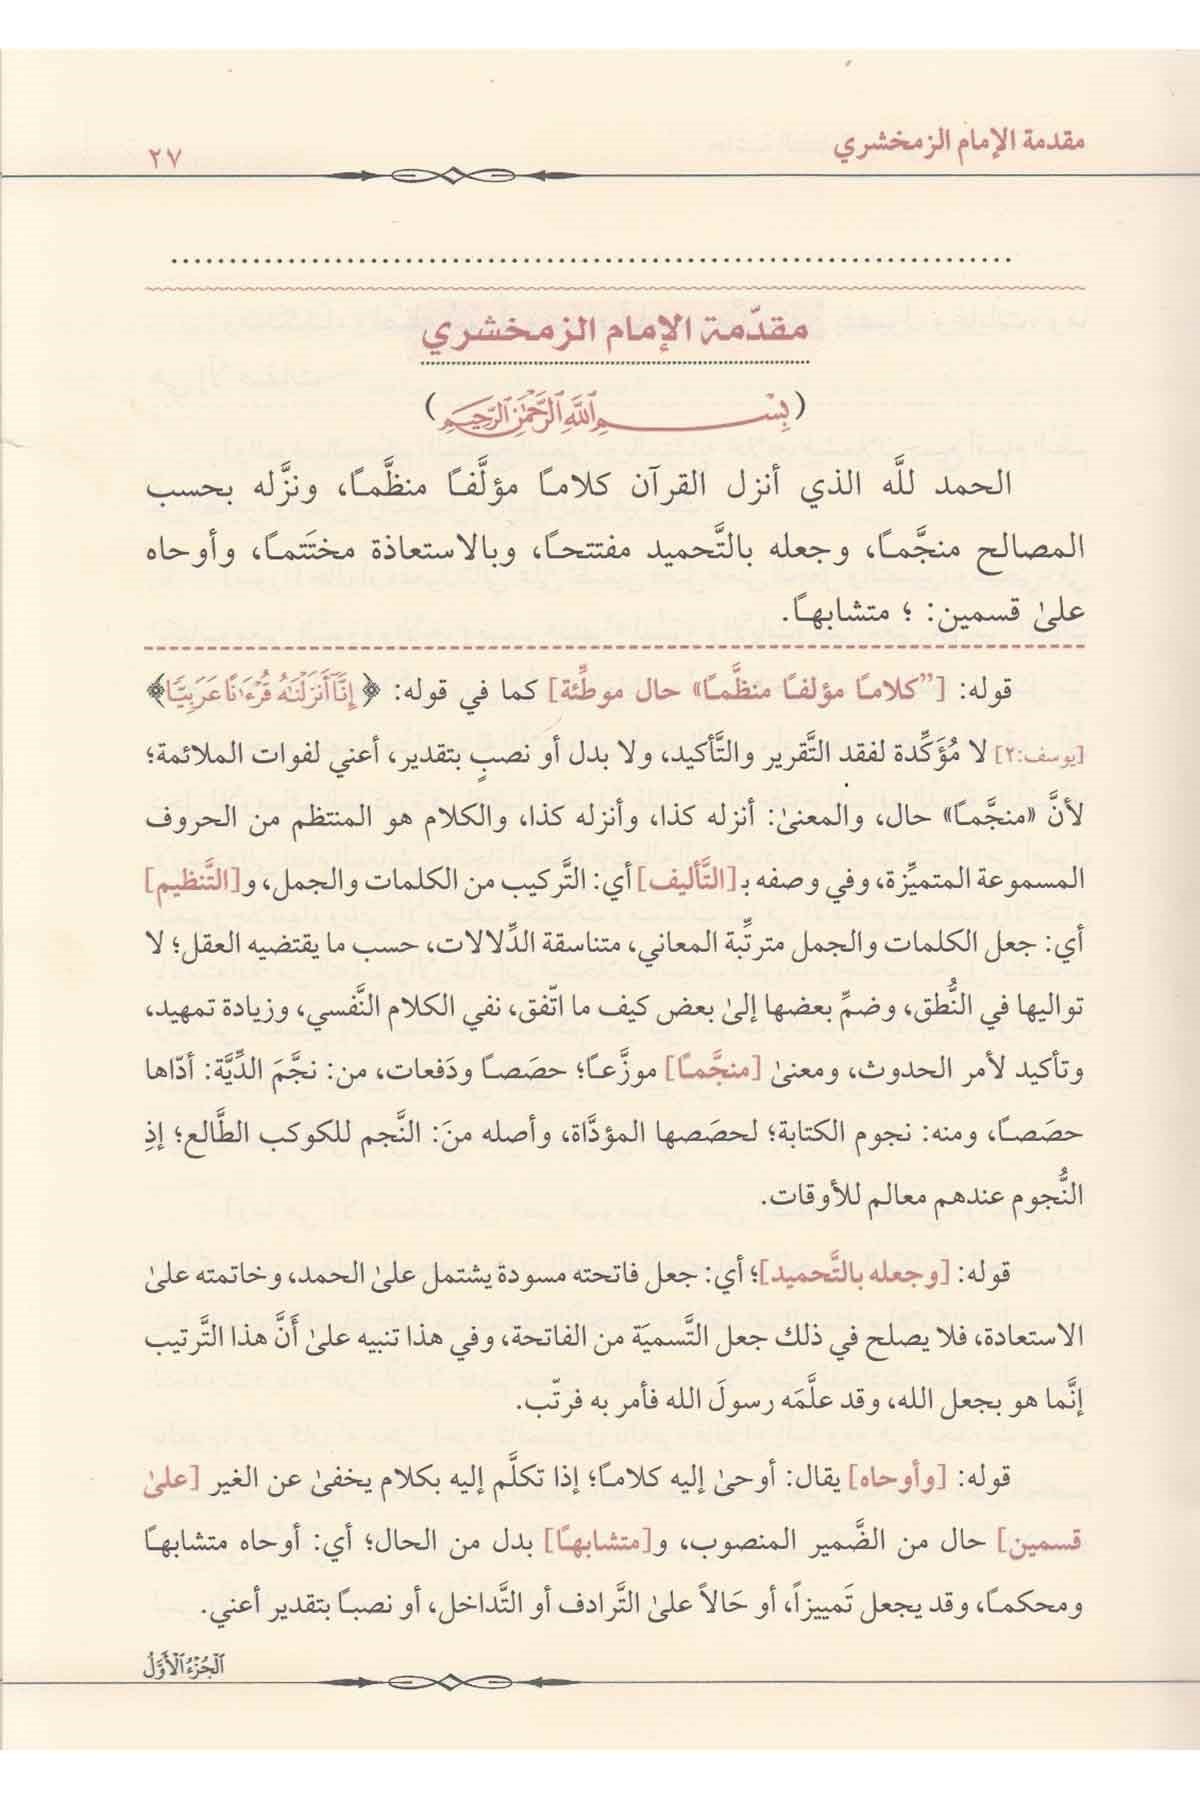 مقدمة الإمام الزمخشري
٢٧
مقدّمة الإمام الزمخشري
(بِسْمِ اللَّهِ الرَّحْمَٰنِ الرَّحِيمِ)
الحمد للَّه الذي أنزل القرآن كلامـًا مؤلَّفـًا منظَّمـًا، ونزَّله بحسب
المصالح منجَّمـًا، وجعله بالتَّحميد مفتتحـًا، وبالاستعاذة مختَتمـًا، وأوحاه
علىٰ قسمين: ؛ متشابهـًا.
قوله: [”كلامـًا مؤلفـًا منظَّمـًا» حال موطِّئة] كما في قوله: ﴿إِنَّآ أَنزَلْنَٰهُ قُرْءَٰنًا عَرَبِيًّا﴾
[يوسف:٢] لا مُؤَكِّدة لفقد التَّقرير والتَّأكيد، ولا بدل أو نصبٍ بتقدير، أعني لفوات الملائمة؛
لأنَّ «منجَّمـًا» حال، والمعنىٰ: أنزله كذا، وأنزله كذا، والكلام هو المنتظم من الحروف
المسموعة المتميِّزة، وفي وصفه بـ [التَّأليف] أي: التَّركيب من الكلمات والجمل، و[التَّنظيم]
أي: جعل الكلمات والجمل مترتِّبة المعاني، متناسقة الدِّلالات، حسب ما يقتضيه العقل؛ لا
تواليها في النُّطق، وضمِّ بعضها إلىٰ بعض كيف ما اتّفق، نفي الكلام النَّفسي، وزيادة تمهيد،
وتأكيد لأمر الحدوث، ومعنىٰ [منجَّمـًا] موزَّعـًا؛ حصَصـًا ودَفعات، من: نجَّمَ الدِّيَّة: أدّاها
حصَصـًا، ومنه: نجوم الكتابة؛ لحصَصها المؤدَّاة، وأصله منَ: النَّجم للكوكب الطَّالع؛ إذِ
النُّجوم عندهم معالم للأوقات.
قوله: [وجعله بالتَّحميد]؛ أي: جعل فاتحته مسودة يشتمل علىٰ الحمد، وخاتمته علىٰ
الاستعادة، فلا يصلح في ذلك جعل التَّسميَة من الفاتحة، وفي هذا تنبيه علىٰ أَنَّ هذا التَّرتيب
إنَّما هو بجعل الله، وقد علَّمَه رسولَ الله فأمر به فرتّب.
قوله: [وأوحاه] يقال: أوحىٰ إليه كلامـًا؛ إذا تكلَّم إليه بكلام يخفىٰ عن الغير [علىٰ
قسمين] حال من الضَّمير المنصوب، و[متشابهـًا] بدل من الحال؛ أي: أوحاه متشابهـًا
ومحكمـًا، وقد يجعل تَمييزاً، أو حَالاً علىٰ التَّرادف أو التَّداخل، أو نصبـًا بتقدير أعني.
الجُزْءُ الأَوَّلُ